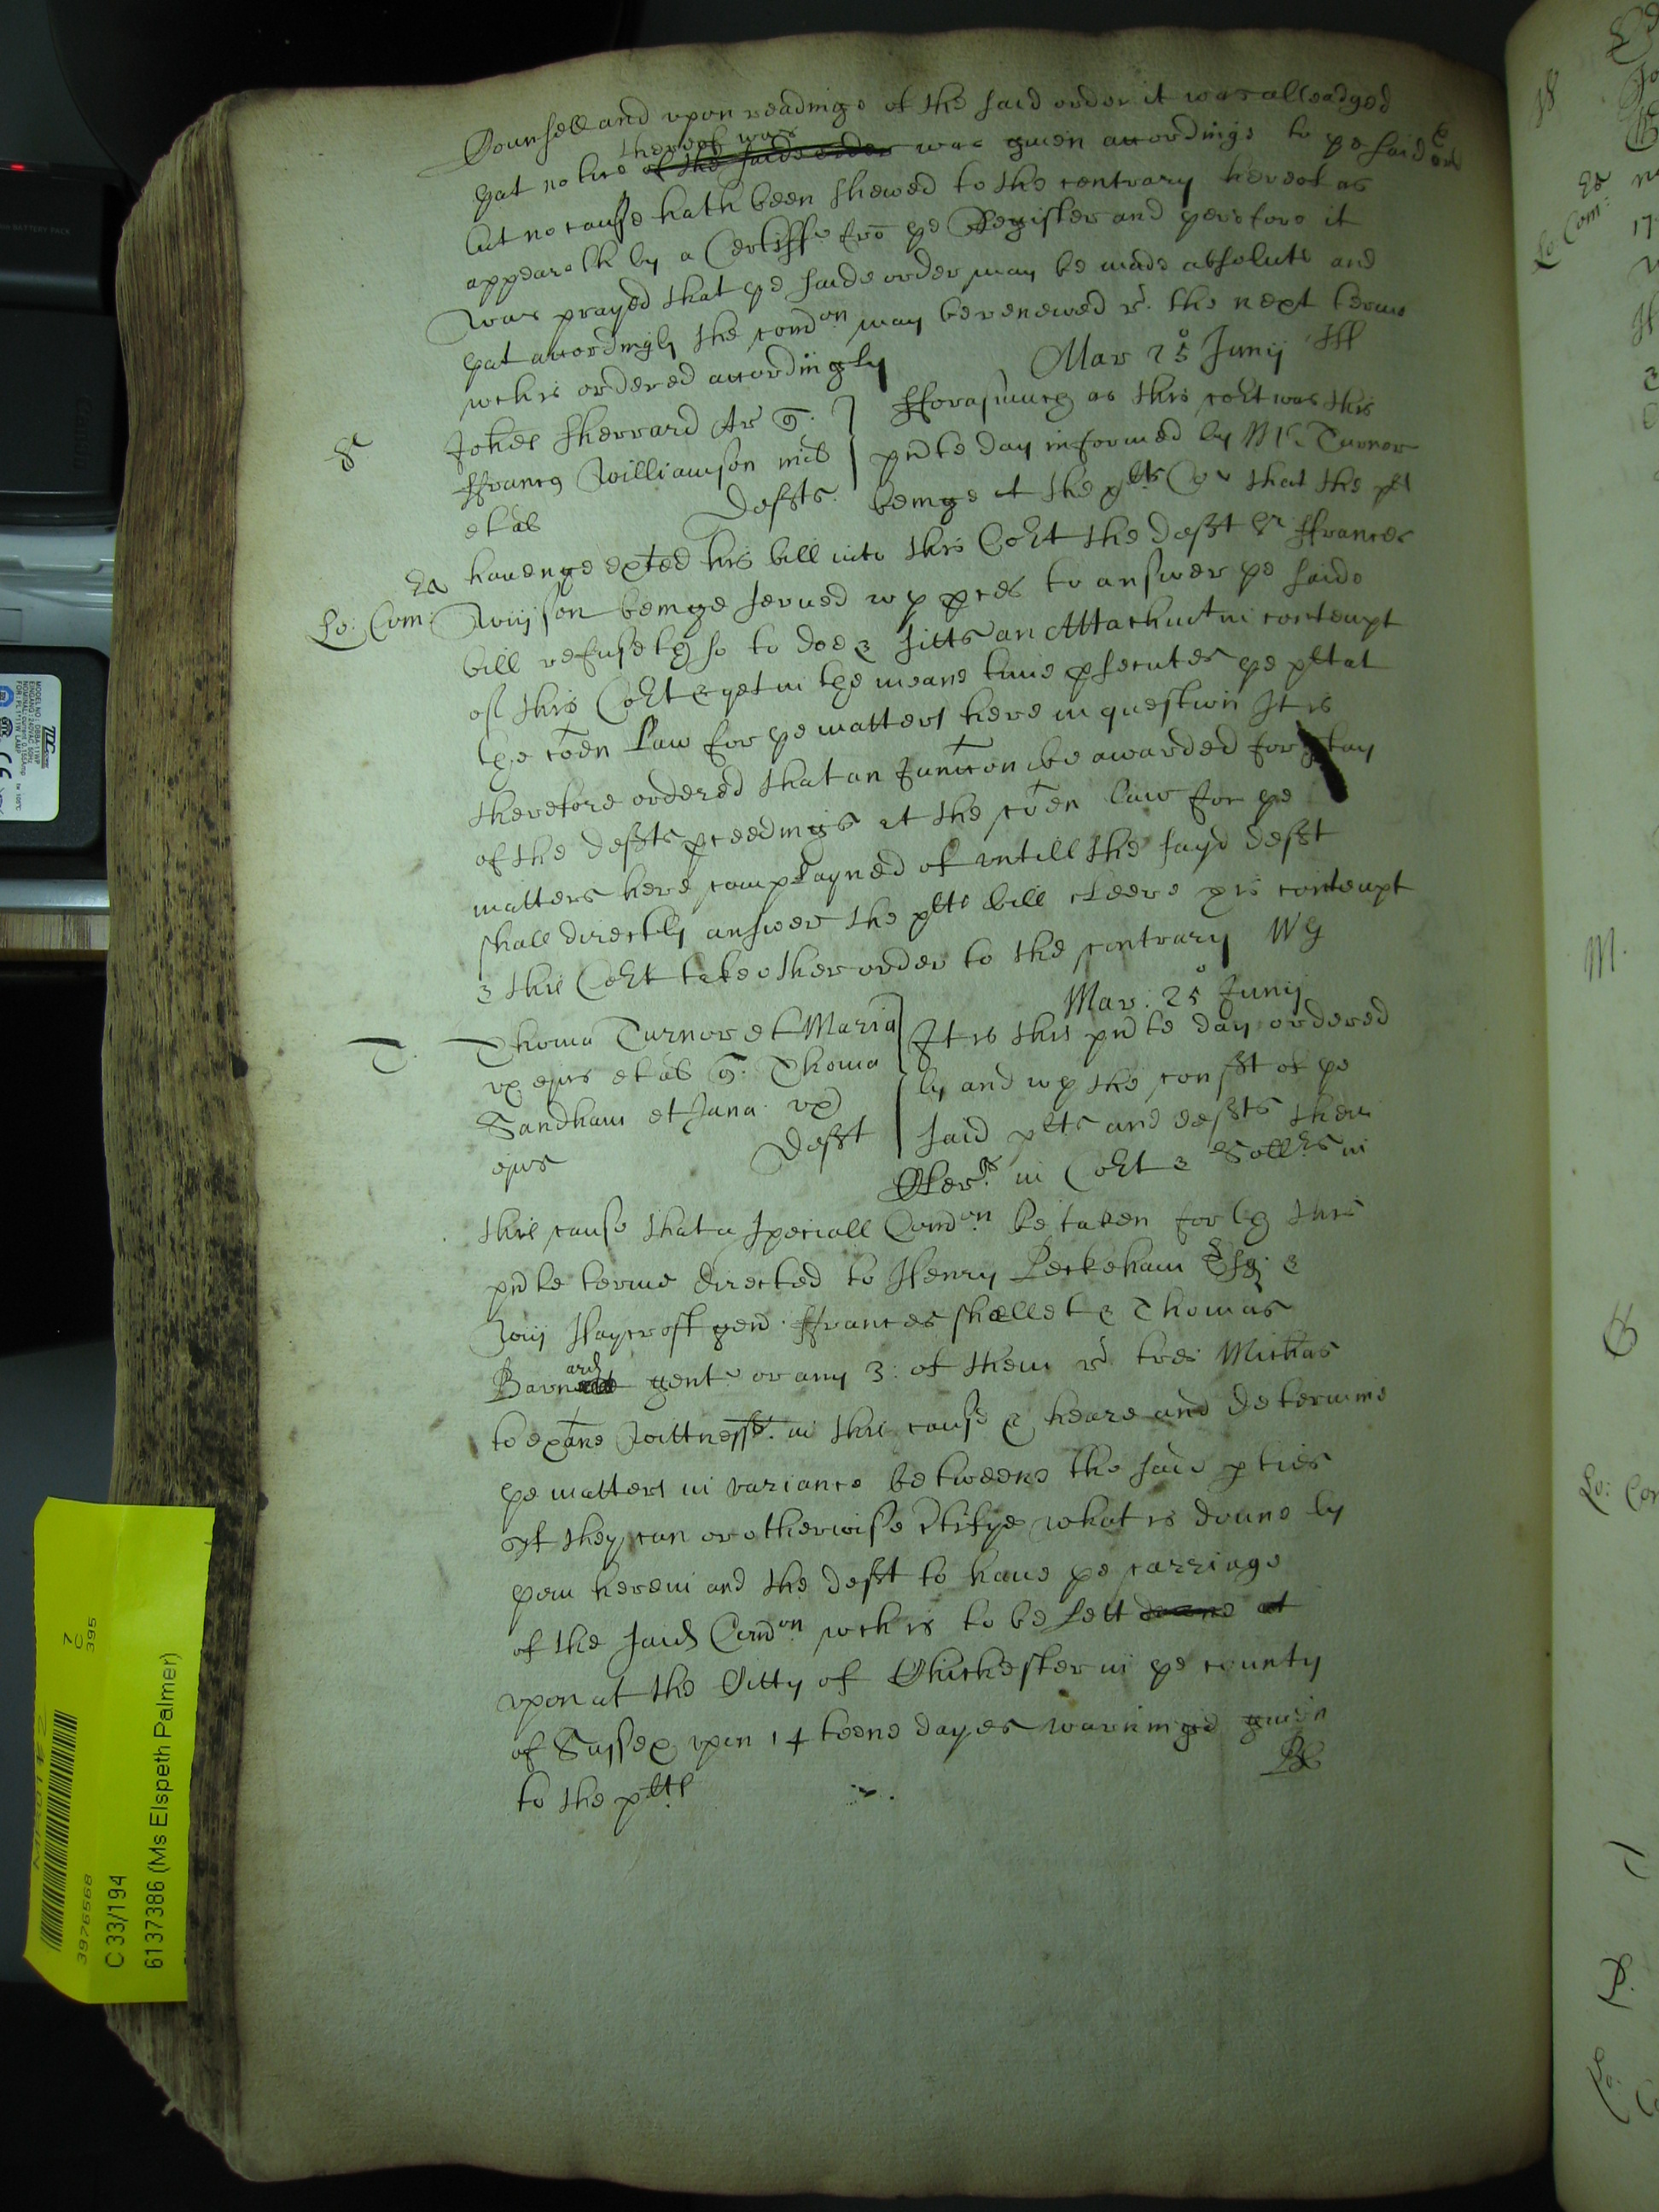 Counsell and upon readinge of the said order it was alleadged
thereof was
yat notice of the saide order was given accordinge to ye said
but no cause hath been shewed to the contrary hereof as
appeareth by a Certiffe frō ye Register and yerefore it
was prayed that ye saide order may be made absolute and
yat accordingly the comōn may be renewed r. the next terme
wch is ordered accordingly
Mar 25 Junij
S
Johēs Sherrard Ar q.
ffranc Williamson mil
et al Defts.
fforasmuch as this cort was this
pnte day informed by Mr. Turnor
beinge of the plts Co that the plt
havenge exted his bill into this Cort the Deft Sr ffrances
Lo: Com:
Wmson beinge served wth pces to answer ye saide
bill refuseth so to doe & sitts an Attachmt in contempt
of this Cort & yet in the meane time psecutes ye plt at
the cōen Law for ye matters here in question It is
therefore ordered that an Juncton be awarded for stay
of the defts pceedings at the cōen law for ye
matters here complayned of untill the sayd deft
shall directly answer the plts bill cleere his contempt
& this Cort take other order to the contrary WG
Mar: 25 Junij
T.
Thoma Turnor et Maria
ux ejus et al q. Thoma
Sandham et Jana ux
ejus Deft
It is this pnte day ordered
by and wth the consct of ye
said plts and defts then
Clerks in Cort & Sollrs in
this cause that a speciall Comōn be taken forth this
pnte terme directed to Henry Peckeham Esq &
Wm Haycroft gen ffrances Shallet & Thomas
Barnard gent or any 3: of them r. tres Michas
to exāne Wittness. in this cause & heare and determine
ye matters in variance betweene the said pties
if they can or otherwise ctifye what is donne by
yem herein and the deft to have ye carriage
of the said Comōn wch is to be sett downe at
upon at the Citty of Chichester in ye county
of Sussex upon 14 teene dayes warninge given
to the plts
C 33/194
6137386 (Ms Elspeth Palmer)
3976568
7
C
395
MODEL NO.: D68A-11WP
EINGANG: 240VAC 50Hz
FOR 1 PL 11W LAMP
CE